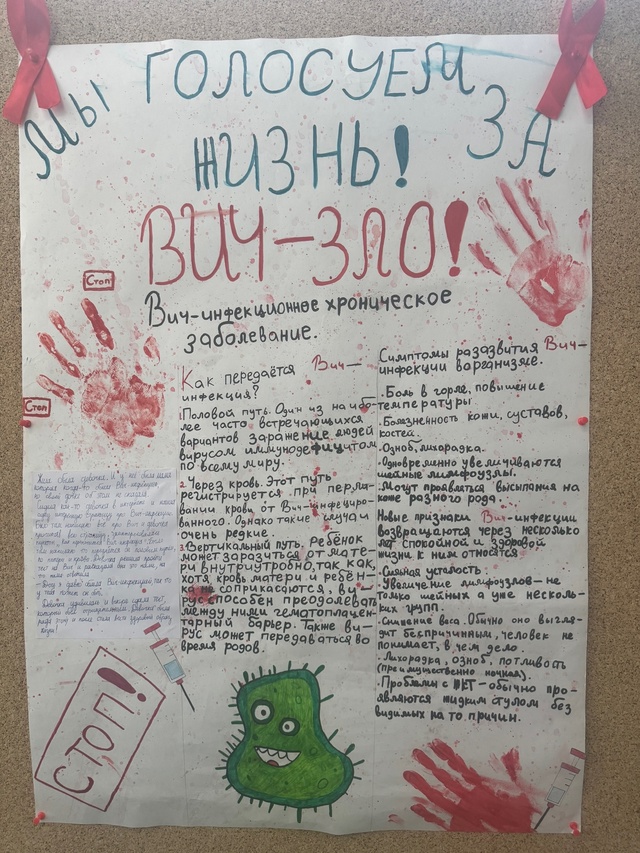 МЫ ГОЛОСУЕМ ЗА
ЖИЗНЬ!
ВИЧ-ЗЛО!
Стоп
Вич-инфекционное хроническое
заболевание.
Стоп
Как передаётся Вич-
инфекция?
1. Половой путь. Один из наибо-
лее часто встречающихся
вариантов заражение людей
вирусом иммунодефицитом
по всему миру.
2. Через кровь. Этот путь
регистрируется при перли-
вании крови от Вич-инфециро-
ванного. Однако такие случаи
очень редкие.
3. Вертикальный путь. Ребёнок
может заразиться от мате-
ри внутриутробно, так как,
хотя кровь матери и ребён-
ка не соприкасаются, ви-
рус способен преодолевать
между ними гематоплацен-
тарный барьер. Также ви-
рус может передаваться во
время родов.
Симптомы разазвития Вич-
инфекции ворганизме.
· Боль в горле, повышение
температуры
· Болезненность кожи, суставов,
костей.
· Озноб, лихорадка.
· Одновременно увеличиваются
шейные лимфоузлы.
· Могут проявляться высыпания на
коже разного рода.
Новые признаки Вич-инфекции
возвращаются через несколько
лет спокойной и здоровой
жизни к ним относятся
· Сильная усталость.
· Увеличение лимфоузлов-не
только шейных а уже несколь-
ких групп.
· Снижение веса. Обычно оно выгля-
дит беспричинным, человек не
понимает, в чем дело.
· Лихорадка, озноб, потливость
(преимущественно ночная).
· Проблемы с ЖКТ-обычно про-
являются жидким стулом без
видимых на то причин.
Жила была девочка. И у неё была мама
СТОП!